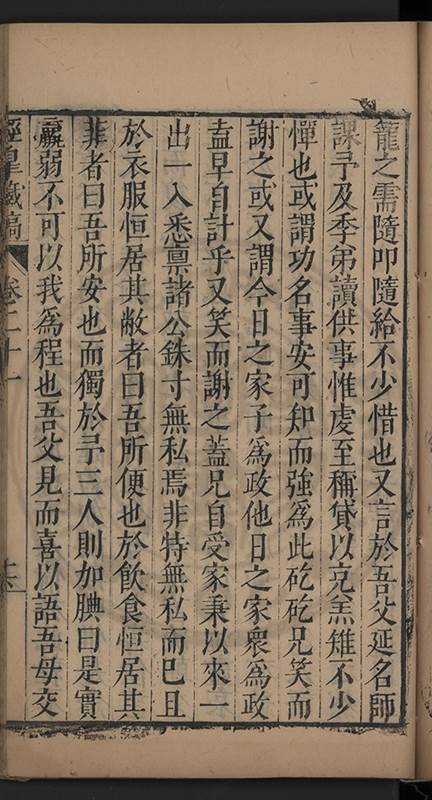 籠之需隨叩隨給不少惜也又言於吾父延名師
課予及季弟讀供事惟虔至稱貸以充羔雉不少
憚也或謂功名事安可知而強為此矻矻兄笑而
謝之或又謂今日之家子為政他日之家衆為政
盍早自計乎又笑而謝之蓋兄自受家秉以來一
出一入悉禀諸公銖寸無私焉非特無私而已且
於衣服恒居其敝者曰吾所便也於飲食恒居其
菲者曰吾所安也而獨於予三人則加腆曰是實
羸弱不可以我為程也吾父見而喜以語吾母交
涇皋藏稿 卷二十一